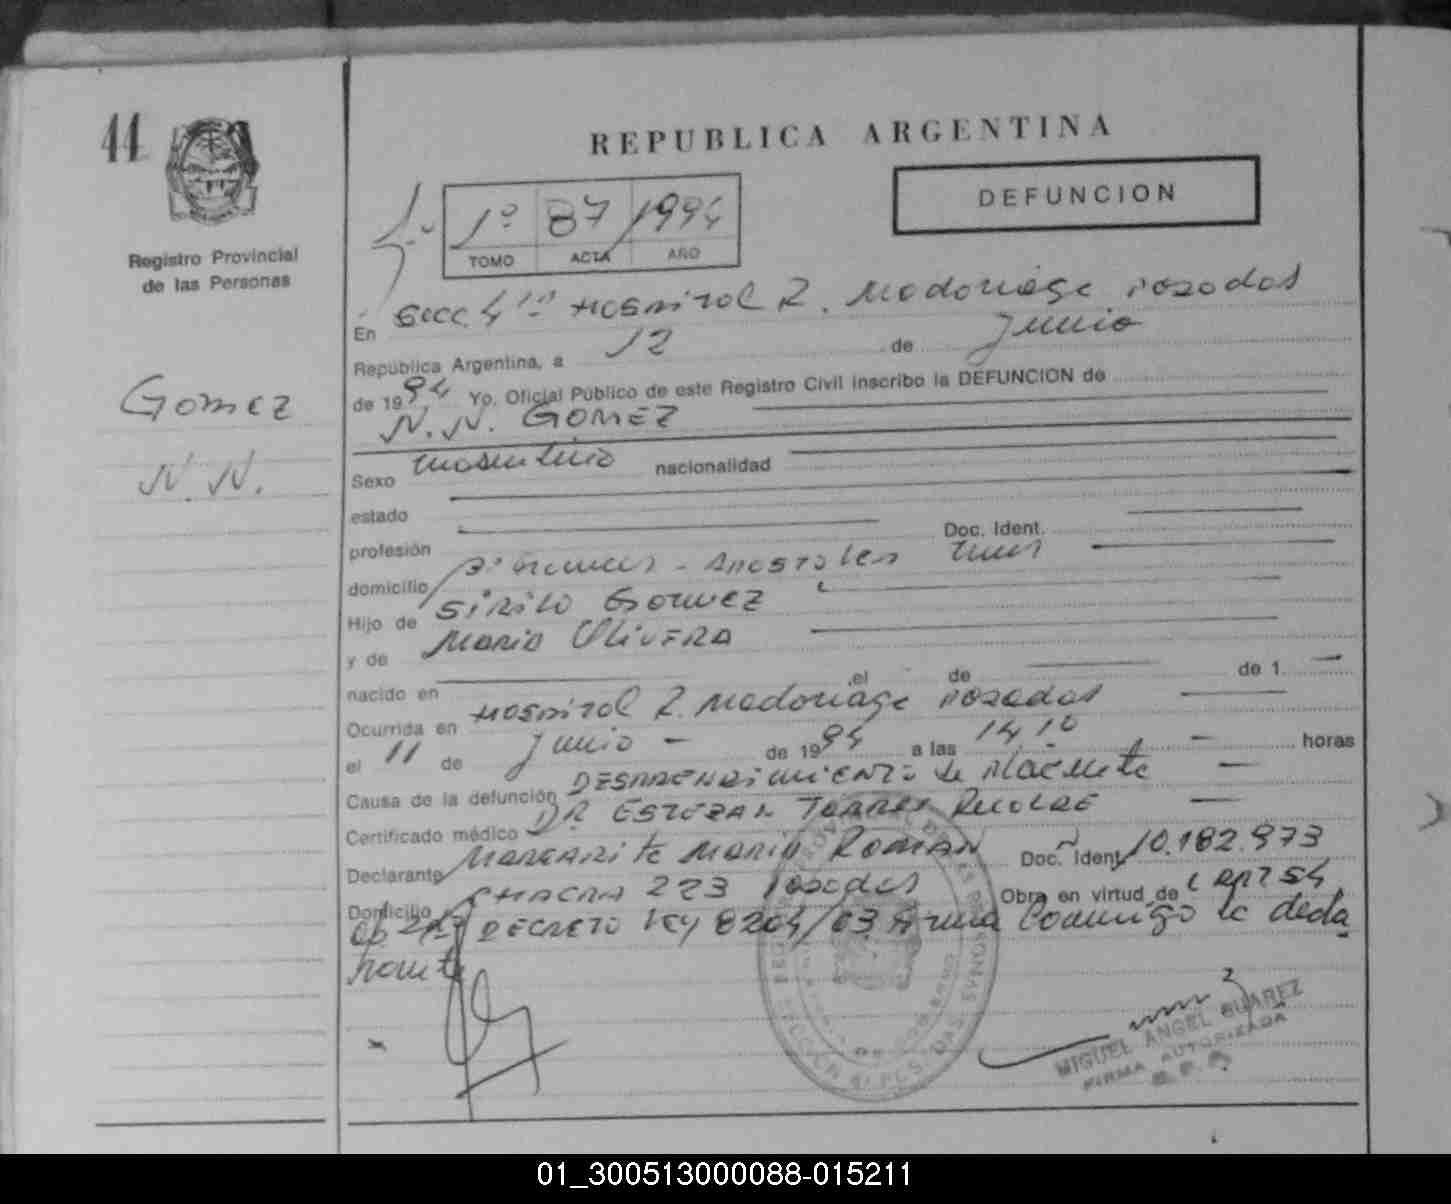 44
REPUBLICA ARGENTINA
DEFUNCION
1º 87 1994
TOMO ACTA AÑO
Registro Provincial
de las Personas
Gomez
N.N.
En Secc 4ta Hospital R. Madariaga Posadas
República Argentina, a 12 de Junio
de 1994 Yo, Oficial Público de este Registro Civil inscribo la DEFUNCION de
N.N. GOMEZ
Sexo masculino nacionalidad
estado
profesión Doc. Ident.
domicilio Apostoles
Hijo de Sirilo Gomez
y de Maria OLIVERA
nacido en el de de 1
Ocurrida en Hospital R. Madariaga Posadas
el 11 de Junio - de 1994 a las 14,10 - horas
Causa de la defunción DESPRENDIMIENTO de Placenta
Certificado médico DR. ESTEBAN TORRES
Declarante MARGARITA Maria ROMAN Doc. Ident. 10.182.973
Domicilio CHACRA 223 Posadas Obra en virtud de
DECRETO LEY 8204/63 Firma Comnigo la decla
rante
MIGUEL ANGEL SUAREZ
FIRMA AUTORIZADA
R. P. P.
01_300513000088-015211